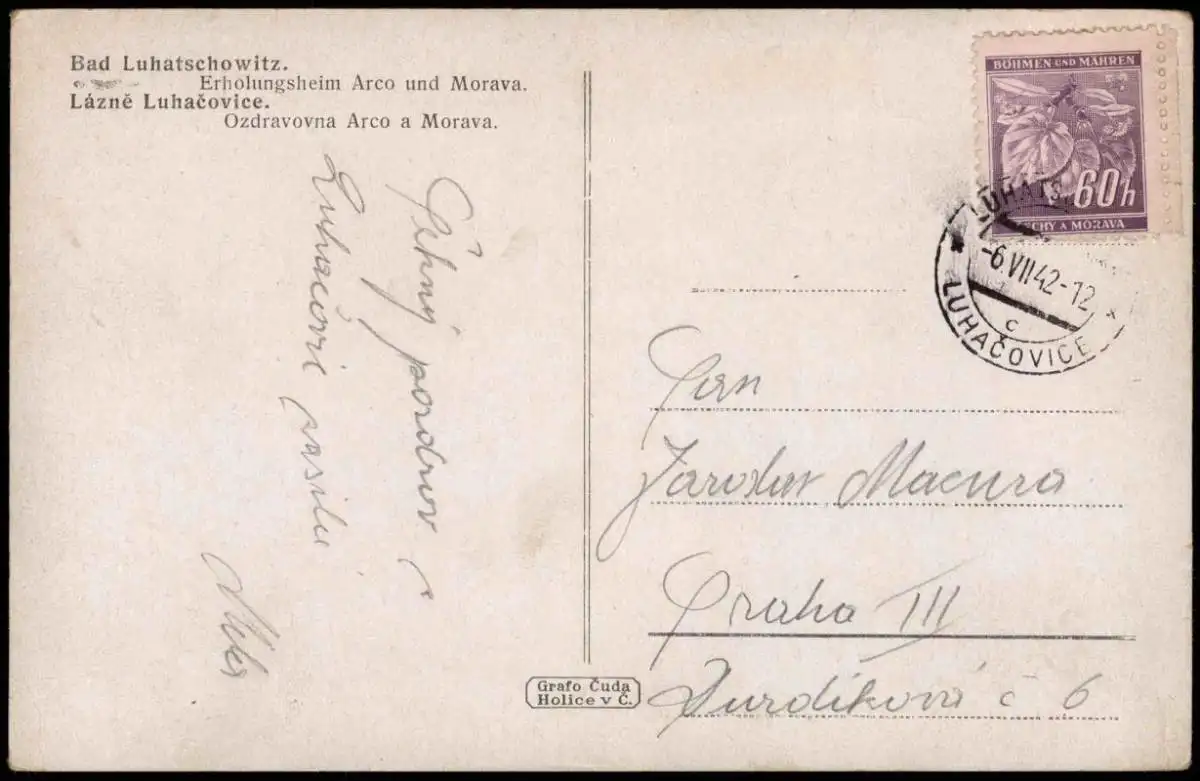 Bad Luhatschowitz.
Erholungsheim Arco und Morava.
Lázně Luhačovice.
Ozdravovna Arco a Morava.
Pěkný pozdrav z
Luhačovic zasílá
BÖHMEN UND MÄHREN
60h
ČECHY A MORAVA
LUHATS
-6.VII.42-12
c
LUHAČOVICE
Pan
Jaroslav Macura
Praha III
Ďurďíková č 6
Grafo Čuda
Holice v Č.